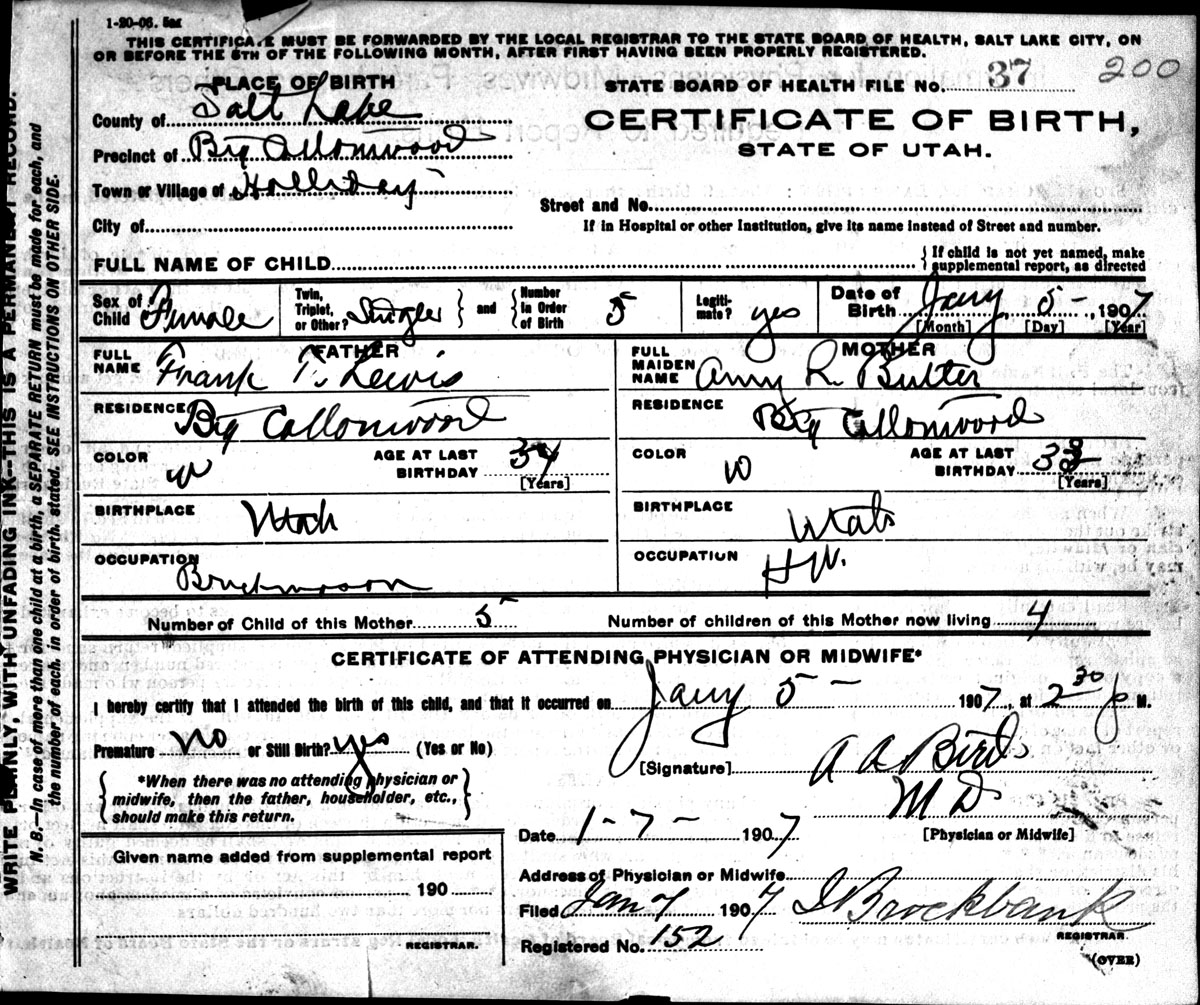 1-20-06.
THIS CERTIFICATE MUST BE FORWARDED BY THE LOCAL REGISTRAR TO THE STATE BOARD OF HEALTH, SALT LAKE CITY, ON
OR BEFORE THE 5TH OF THE FOLLOWING MONTH, AFTER FIRST HAVING BEEN PROPERLY REGISTERED.
200
PLACE OF BIRTH
STATE BOARD OF HEALTH FILE No. 37
County of Salt Lake
CERTIFICATE OF BIRTH,
Precinct of Big Cottonwood
STATE OF UTAH.
Town or Village of Holliday
Street and No.
City of
If in Hospital or other Institution, give its name instead of Street and number.
FULL NAME OF CHILD
{ If child is not yet named, make supplemental report, as directed
Sex of Child Female
Twin, Triplet, or Other? Single } and { Number in Order of Birth 5
Legitimate? yes
Date of Birth Jany 5 -, 1907
[Month] [Day] [Year]
FATHER
FULL NAME Frank T. Lewis
RESIDENCE Big Cottonwood
COLOR W
AGE AT LAST BIRTHDAY 34
[Years]
BIRTHPLACE Utah
OCCUPATION Brickmason
MOTHER
FULL MAIDEN NAME Amy R. Butter
RESIDENCE Big Cottonwood
COLOR W
AGE AT LAST BIRTHDAY 33
[Years]
BIRTHPLACE Utah
OCCUPATION H W.
Number of Child of this Mother 5
Number of children of this Mother now living 4
CERTIFICATE OF ATTENDING PHYSICIAN OR MIDWIFE*
I hereby certify that I attended the birth of this child, and that it occurred on Jany 5 - 1907, at 2 30 p M.
Premature no or Still Birth? yes (Yes or No)
[Signature] A A Bird
M D
[Physician or Midwife]
{ *When there was no attending physician or
midwife, then the father, householder, etc.,
should make this return. }
Date 1-7- 1907
Given name added from supplemental report
190
REGISTRAR.
Address of Physician or Midwife
Filed Jan 7 1907 Brockbank
REGISTRAR.
Registered No. 152
(OVER)
WRITE PLAINLY, WITH UNFADING INK—THIS IS A PERMANENT RECORD.
N. B.—In case of more than one child at a birth, a SEPARATE RETURN must be made for each, and
the number of each, in order of birth, stated. SEE INSTRUCTIONS ON OTHER SIDE.